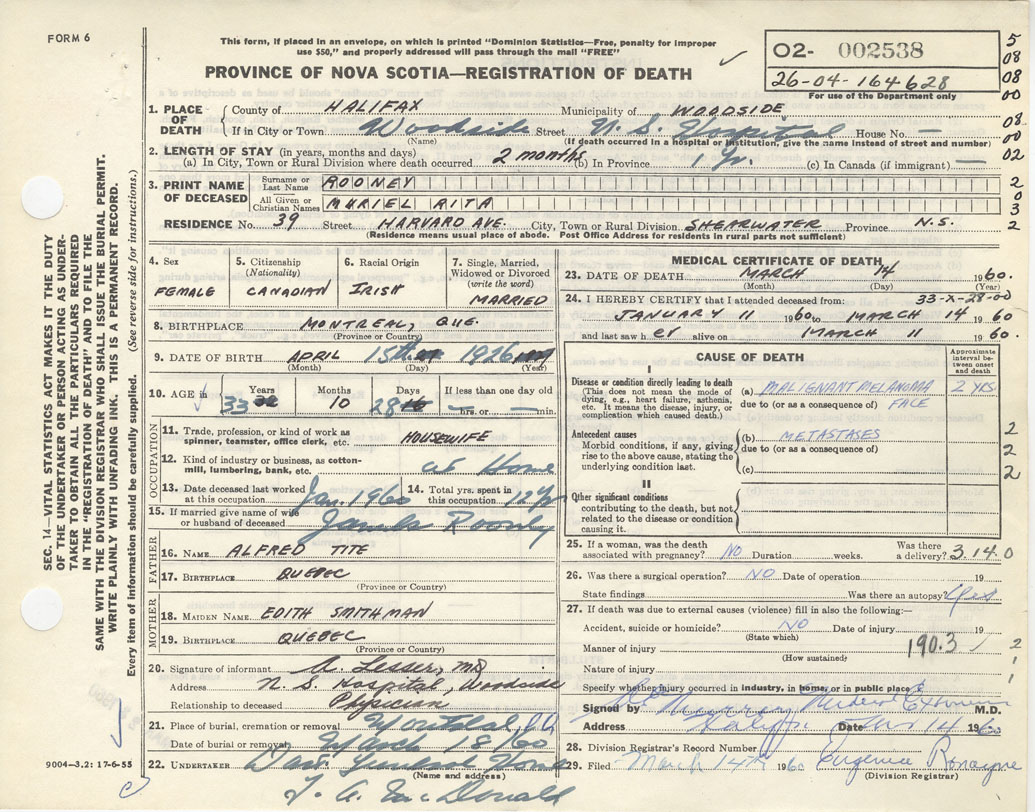 FORM 6
This form, if placed in an envelope, on which is printed "Dominion Statistics—Free, penalty for improper
use $50," and properly addressed will pass through the mail "FREE"
O2- 002538
26-04-164628
For use of the Department only
PROVINCE OF NOVA SCOTIA—REGISTRATION OF DEATH
5
08
08
00
08
00
02
2
0
3
2
1. PLACE OF DEATH
County of HALIFAX Municipality of WOODSIDE
If in City or Town Woodside Street N. S. Hospital House No. —
(Name) (If death occurred in a hospital or institution, give the name instead of street and number)
2. LENGTH OF STAY (in years, months and days)
(a) In City, Town or Rural Division where death occurred 2 months (b) In Province 1 Yr. (c) In Canada (if immigrant) —
3. PRINT NAME OF DECEASED
Surname or Last Name ROONEY
All Given or Christian Names MURIEL RITA
RESIDENCE No. 39 Street HARVARD AVE. City, Town or Rural Division SHEARWATER Province N.S.
(Residence means usual place of abode. Post Office Address for residents in rural parts not sufficient)
4. Sex
FEMALE
5. Citizenship
(Nationality)
CANADIAN
6. Racial Origin
IRISH
7. Single, Married,
Widowed or Divorced
(write the word)
MARRIED
8. BIRTHPLACE MONTREAL, QUE.
(Province or Country)
9. DATE OF BIRTH APRIL 15th 1926
(Month) (Day) (Year)
10. AGE in
Years 33
Months 10
Days 28
If less than one day old
— hrs. or — min.
OCCUPATION
11. Trade, profession, or kind of work as
spinner, teamster, office clerk, etc. HOUSEWIFE
12. Kind of industry or business, as cotton-
mill, lumbering, bank, etc. at Home
13. Date deceased last worked
at this occupation Jan. 1960
14. Total yrs. spent in
this occupation 12 Yrs
15. If married give name of wife
or husband of deceased James Rooney
FATHER
16. NAME ALFRED TITE
17. BIRTHPLACE QUEBEC
(Province or Country)
MOTHER
18. MAIDEN NAME EDITH SMITHMAN
19. BIRTHPLACE QUEBEC
(Province or Country)
20. Signature of informant A. Lesser, MD
Address N. S. Hospital, Woodside
Relationship to deceased Physician
21. Place of burial, cremation or removal Montreal, P.Q.
Date of burial or removal March 18/60
22. UNDERTAKER Dart. Funeral Home
(Name and address)
T. A. McDonald
MEDICAL CERTIFICATE OF DEATH
23. DATE OF DEATH MARCH 14 1960.
(Month) (Day) (Year)
24. I HEREBY CERTIFY that I attended deceased from: 33-X-28-00
JANUARY 11 1960 to MARCH 14 1960
and last saw h er alive on MARCH 11 1960.
CAUSE OF DEATH
Approximate
interval be-
tween onset
and death
I
Disease or condition directly leading to death
(This does not mean the mode of
dying, e.g., heart failure, asthenia,
etc. It means the disease, injury, or
complication which caused death.)
(a) MALIGNANT MELANOMA 2 YRS
due to (or as a consequence of) FACE
Antecedent causes
Morbid conditions, if any, giving
rise to the above cause, stating the
underlying condition last.
(b) METASTASES
due to (or as a consequence of)
(c)
2
2
2
II
Other significant conditions
contributing to the death, but not
related to the disease or condition
causing it.
25. If a woman, was the death
associated with pregnancy? NO Duration weeks. Was there
a delivery? 3 14 0
26. Was there a surgical operation? NO Date of operation 19
State findings Was there an autopsy? Yes
27. If death was due to external causes (violence) fill in also the following:—
Accident, suicide or homicide? NO Date of injury 19
(State which)
Manner of injury 190.3 2
(How sustained)
Nature of injury 1
Specify whether injury occurred in industry, in home, or in public place
Signed by Medical Examiner M.D.
Address Halifax Date Mar 14 1960
28. Division Registrar's Record Number
29. Filed March 14th 1960 Eugenie Ronayne
(Division Registrar)
SEC. 14—VITAL STATISTICS ACT MAKES IT THE DUTY
OF THE UNDERTAKER OR PERSON ACTING AS UNDER-
TAKER TO OBTAIN ALL THE PARTICULARS REQUIRED
IN THE "REGISTRATION OF DEATH" AND TO FILE THE
SAME WITH THE DIVISION REGISTRAR WHO SHALL ISSUE THE BURIAL PERMIT.
WRITE PLAINLY WITH UNFADING INK. THIS IS A PERMANENT RECORD.
Every item of Information should be carefully supplied. (See reverse side for instructions.)
9004—3.2: 17-6-55